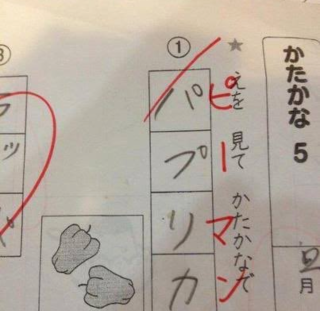 かたかな 5
月
★ えを 見て かたかなで
①
パプリカ
ピーマン